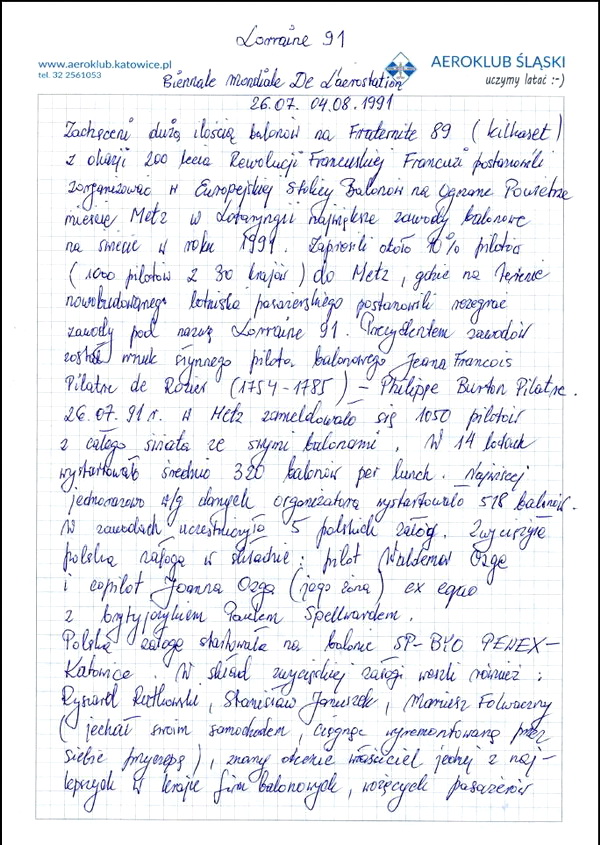 Lorraine 91
www.aeroklub.katowice.pl
tel. 32 2561053
AEROKLUB ŚLĄSKI
uczymy latać :-)
Biennale Mondiale De L'aerostation
26.07. 04.08.1991
Zachęceni dużą ilością balonów na Fraternite 89 (kilkaset)
z okazji 200 lecia Rewolucji Francuskiej Francuzi postanowili
zorganizować w Europejskiej Stolicy Balonów na Ogrzane Powietrze
mieście Metz w Lotaryngii największe zawody balonowe
na świecie w roku 1991. Zaprosili około 10% pilotów
(1000 pilotów z 30 krajów) do Metz, gdzie na terenie
nowobudowanego lotniska pasażerskiego postanowili rozegrać
zawody pod nazwą Lorraine 91. Prezydentem zawodów
został wnuk słynnego pilota balonowego Jeana Francois
Pilatre de Rozier (1754-1785) - Philippe Buron Pilatre.
26.07.91 r. w Metz zameldowało się 1050 pilotów
z całego świata ze swymi balonami. W 14 lotach
wystartowało średnio 320 balonów per lunch. Najwięcej
jednorazowo w/g danych organizatora wystartowało 518 balonów.
W zawodach uczestniczyło 5 polskich załóg. Zwyciężyła
polska załoga w składzie: pilot Waldemar Ozga
i copilot Joanna Ozga (jego żona) ex equo
z brytyjczykiem Paulem Spellwardem.
Polska załoga startowała na balonie SP-BYO PENEX-
Katowice. W skład zwycięskiej załogi weszli również:
Ryszard Rutkowski, Stanisław Januszek, Mariusz Folwaczny
(jechał swoim samochodem, ciągnąc wyremontowaną przez
siebie przyczepę), znany obecnie właściciel jednej z naj-
lepszych w kraju firm balonowych, wożących pasażerów